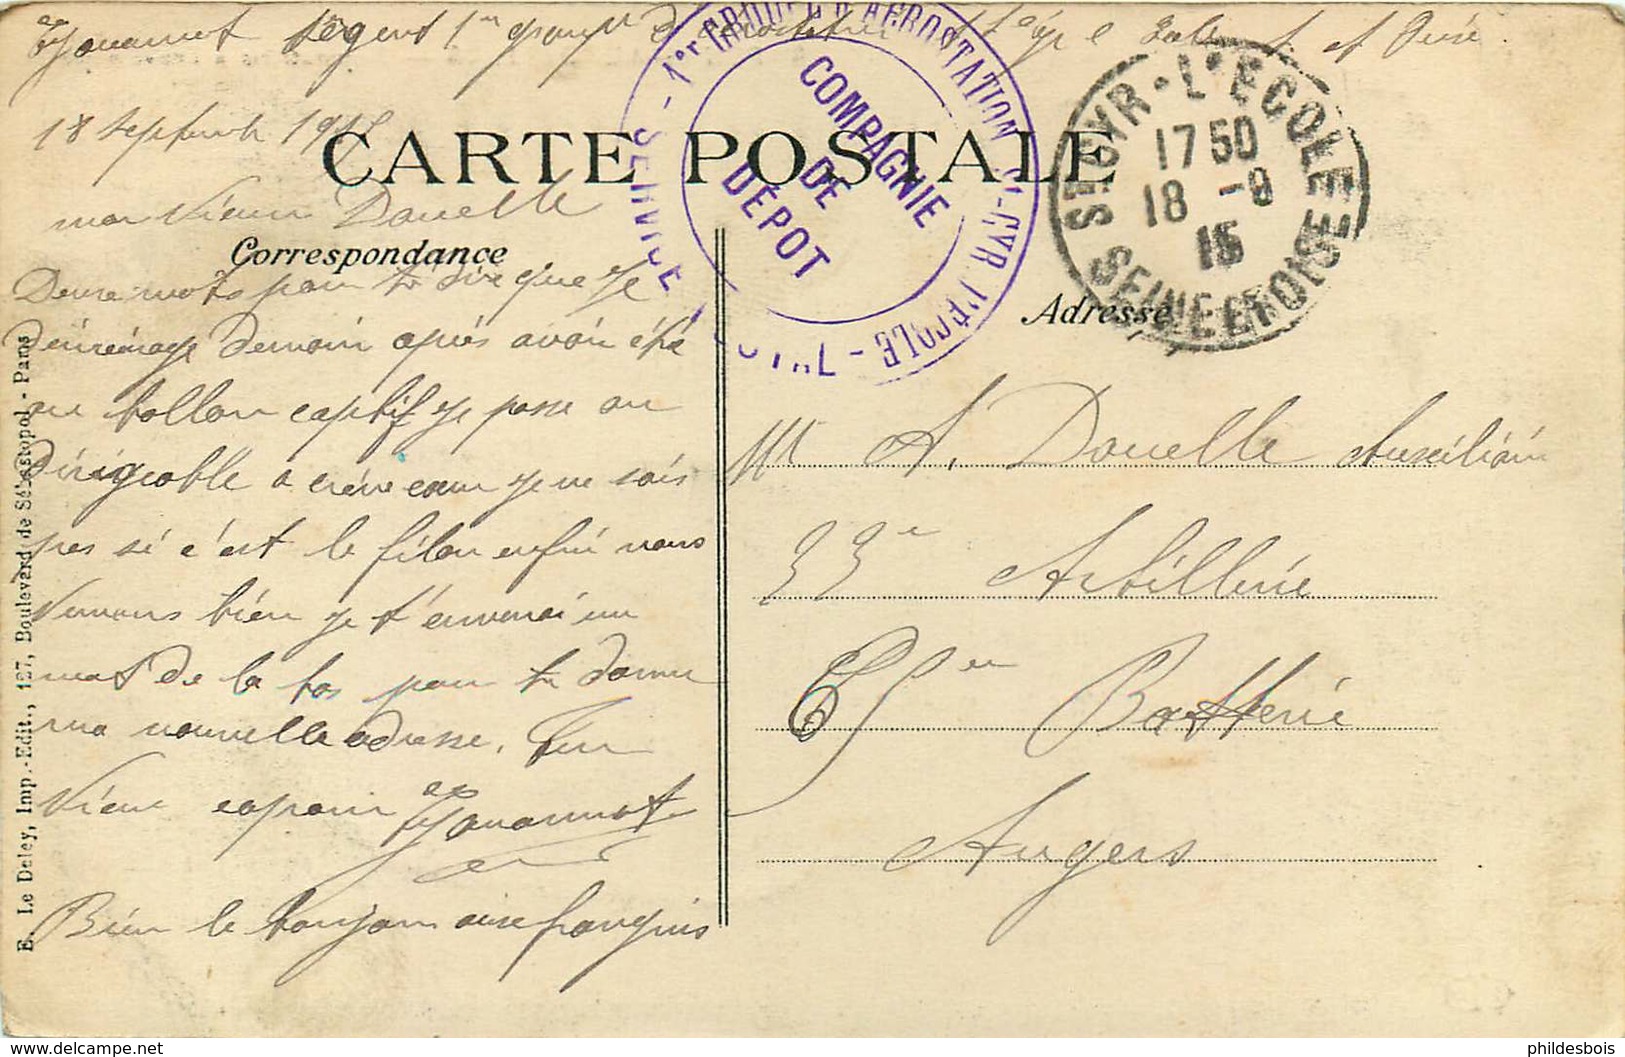 Sergent 1er groupe
18 Septembre 1915
CARTE POSTALE
mon vieux Douelle
Correspondance
Deux mots pour te dire que je
déménage demain après avoir été
au ballon captif je passe au
dirigeable a crève coeur je ne sais
pas si c'est le filon enfin nous
verrons bien je t'enverrai un
mot de la bas pour te donner
ma nouvelle adresse. Ton
vieux copain
Bien le bonjour aux frangins
E. Le Deley, Imp.-Edit., 127, Boulevard de Sébastopol - Paris
1er GROUPE D'AEROSTATION St-CYR L'ÉCOLE - SERVICE POSTAL -
COMPAGNIE
DE
DÉPOT
ST CYR-L'ECOLE
17 50
18 -9
15
SEINE ET OISE
Adresse
Mr A. Douelle Auxiliaire
33e Artillerie
65e Batterie
Angers
phildesbois